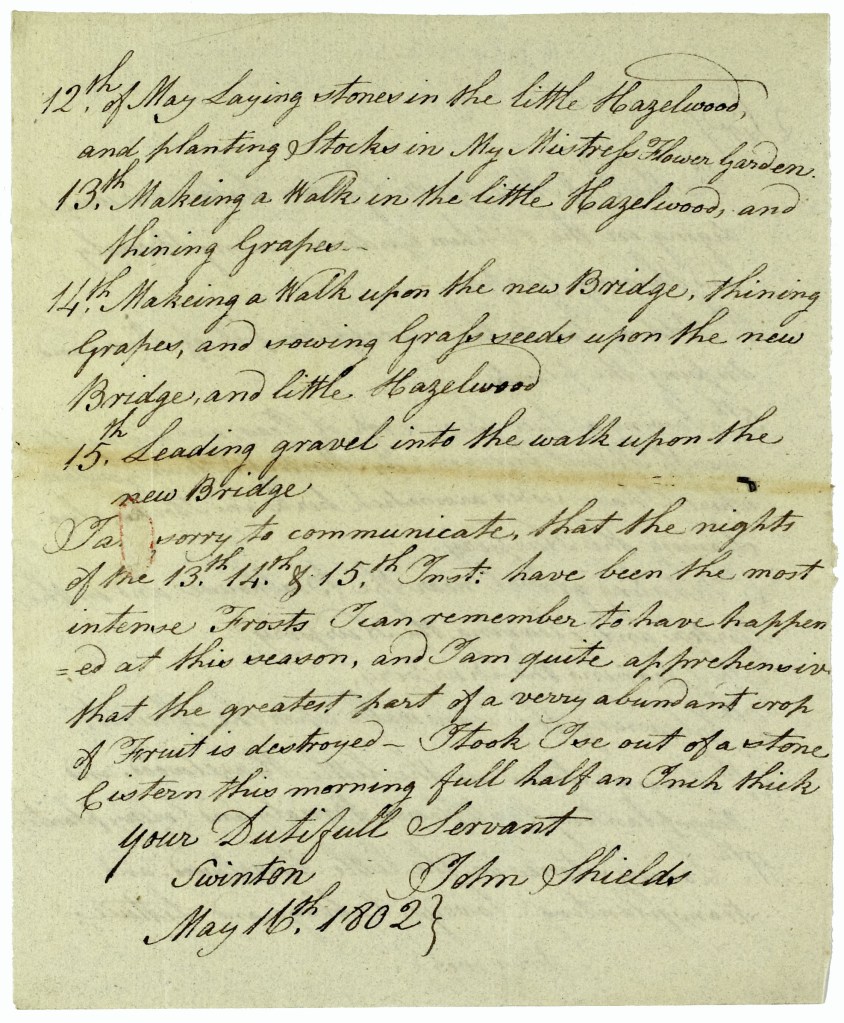 12.th of May Laying stones in the little Hazelwood,
and planting Stocks in My Mistress Flower Garden.
13.th Makeing a Walk in the little Hazelwood, and
thining Grapes –
14.th Makeing a Walk upon the new Bridge, thining
Grapes, and sowing Grass seeds upon the new
Bridge, and little Hazelwood
15.th Leading gravel into the walk upon the
new Bridge
I a sorry to communicate, that the nights
of the 13.th 14.th & 15.th Inst: have been the most
intense Frosts I can remember to have happen
=ed at this season, and I am quite apprehensiv
that the greatest part of a verry abundant crop
of Fruit is destroyed – I took Ise out of a stone
Cistern this morning full half an Inch thick
your Dutifull Servant
Swinton John Shields
May 16.th 1802}